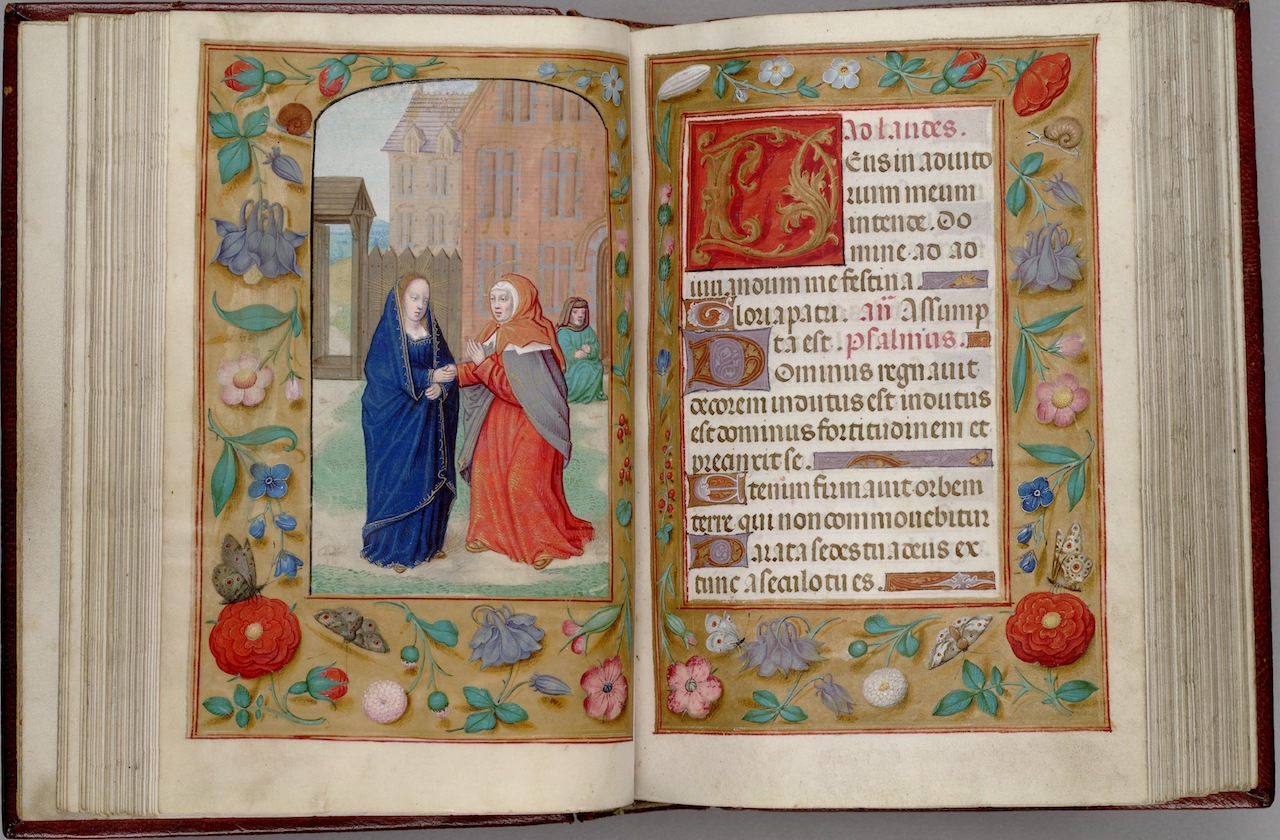 63
Ad laudes.
Eus in adiuto
rium meum
intende. Do
mine ad ad
iuuandum me festina
Gloria patri. añ Assump
ta est. psalmus.
Dominus regnauit
decorem indutus est indutus
est dominus fortitudinem et
precinxit se.
Etenim firmauit orbem
terre qui non commouebitur
Parata sedes tua deus ex
tunc a seculo tu es.